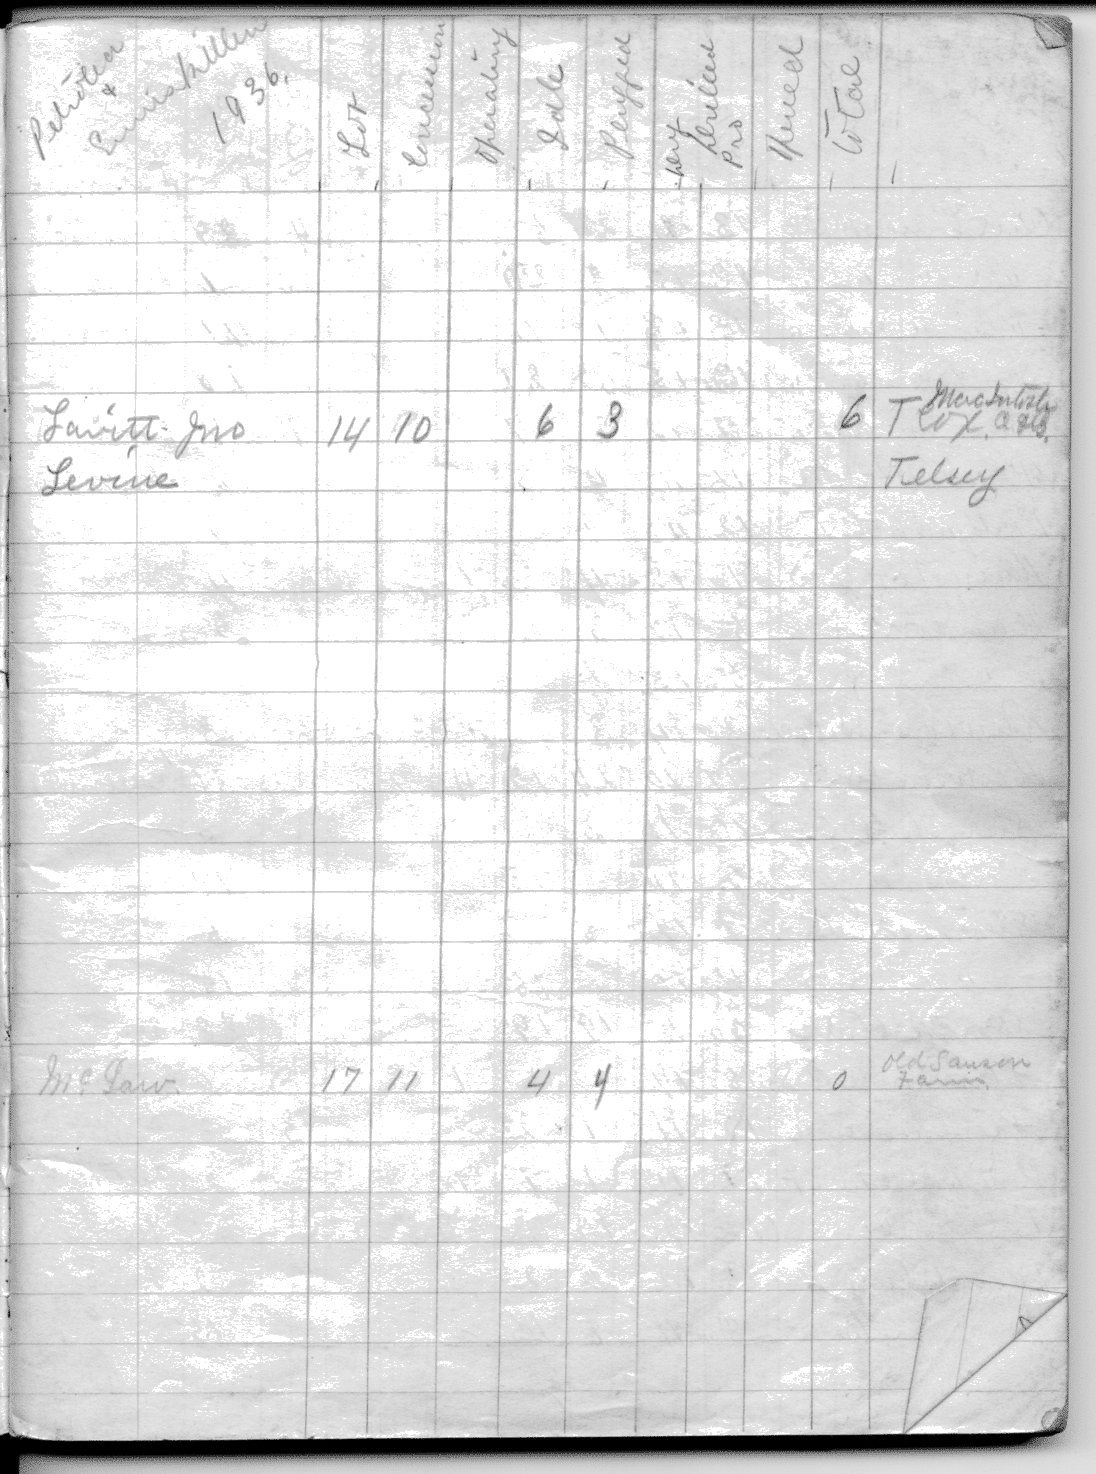 Petrolea
&
Enniskillen
1936.
Lot
Concession
Operating
Idle
Plugged
Dry
Drilled
Pro
Total
MacIntosh
Lavitt Jno 14 10 6 3 6 T Cox,
Levine Telsey
Old Sanson
Mc 17 11 4 4 0 Farm.